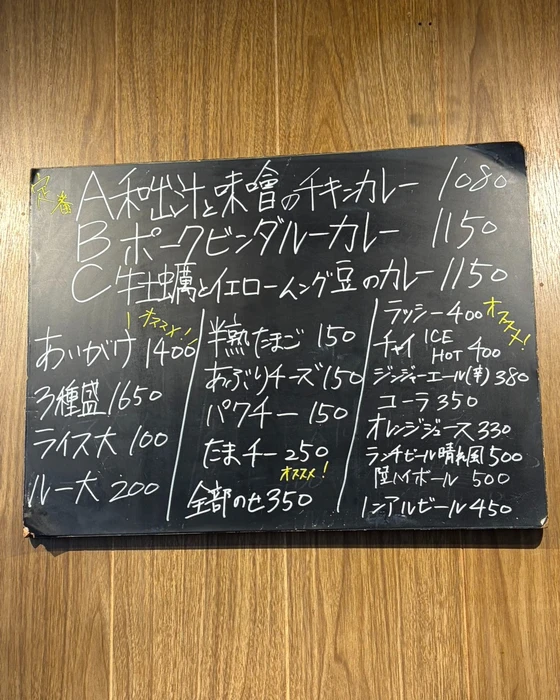 定番
A 和出汁と味噌のチキンカレー 1080
B ポークビンダルーカレー 1150
C 牡蠣とイエロームング豆のカレー 1150
オススメ!
あいがけ 1400
3種盛 1650
ライス大 100
ルー大 200
半熟たまご 150
あぶりチーズ 150
パクチー 150
たまチー 250
オススメ!
全部のせ 350
ラッシー 400
オススメ!
チャイ ICE HOT 400
ジンジャーエール(辛) 380
コーラ 350
オレンジジュース 330
ランチビール 晴れ風 500
陸ハイボール 500
ノンアルビール 450